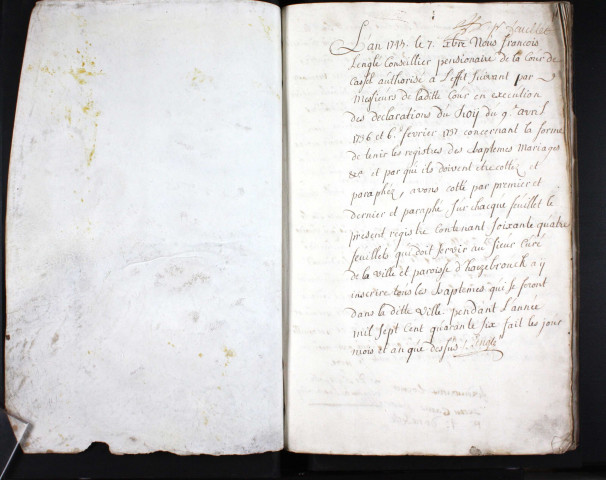 1er feuillet
L'an 1745 le 7. xbre Nous francois
Lenglé Conseillier pensionaire de la Cour de
Cassel authorisé a L'effet suivant par
Messieurs de laditte Cour en execution
des declarations du Roij du 9e avril
1736 et 6e fevrier 1737 concernant la forme
de tenir les registres des baptemes mariages
&ca et par qui ils doivent etre cottéz et
paraphéz, avons cotté par premier et
dernier et paraphé sur chacque feuillet le
present registre contenant soixante quatre
feuillets qui doit servir au Sieur Curé
de la ville et paroisse d'hazebrouck a y
inscrire tous les baptemes qui se feront
dans la ditte ville pendant L'année
mil sept Cent quarante six fait les jour
mois et an que dessus Lenglé